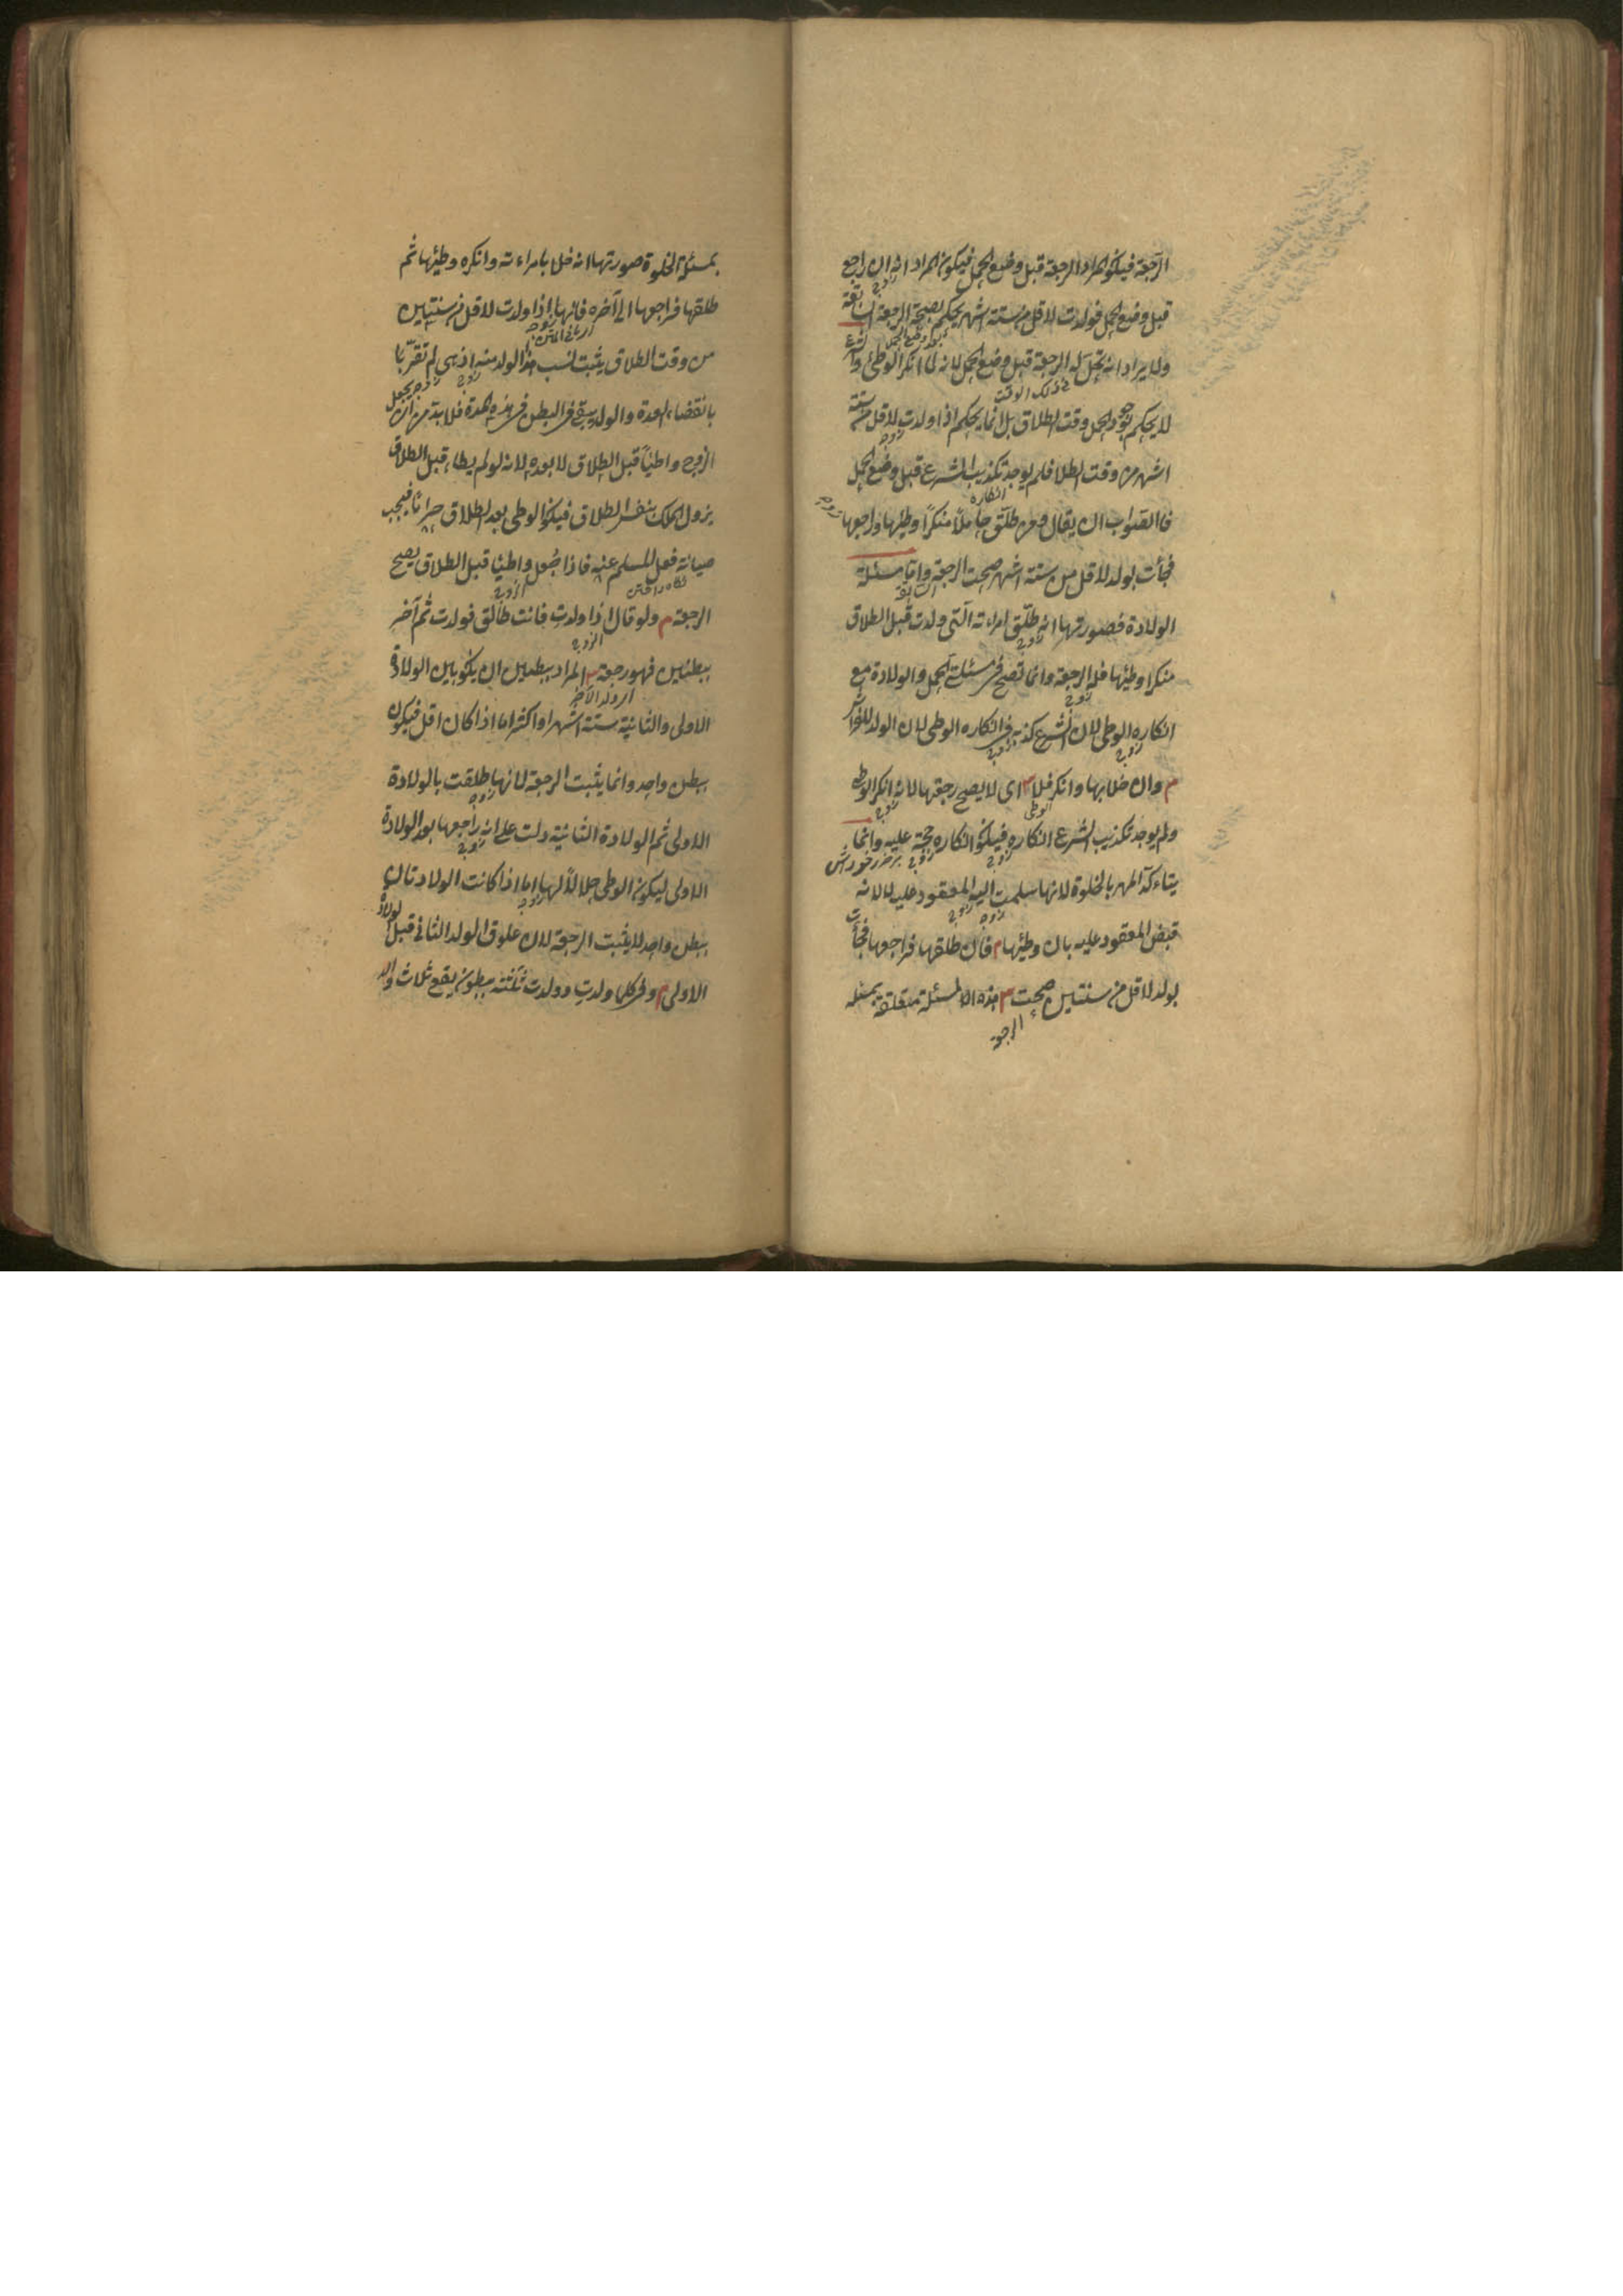 الرجعة فيكون المراد الرجعة قبل وضع الحمل فيكون المراد انه ان راجع
قبل وضع الحمل فولدت لاقل من ستة اشهر يحكم بصحة الرجعة السابقة
ولا يراد انه تحل له الرجعة قبل وضع الحمل لانه لما انكر الوطئ والشرع
لا يحكم بوجود الحمل وقت الطلاق بل انما يحكم اذا ولدت لاقل من ستة
اشهر من وقت الطلاق فلم يوجد تكذيب الشرع قبل وضع الحمل
فالصواب ان يقال ومن طلق حاملاً منكرًا وطئها وراجعها
فجأت بولد لاقل من ستة اشهر صحت الرجعة واما مسئلة
الولادة فصورتها انه طلق امراءته التي ولدت قبل الطلاق
منكرا وطئها فله الرجعة وانما تصح في مسئلة الحمل والولادة مع
انكاره الوطى لان الشرع كذبه في انكاره الوطى لان الولد للفراش
م وان خلا بها وانكر فلا س اى لا يصح رجعتها لانه انكر الوطى
ولم يوجد تكذيب الشرع انكاره فيكون انكاره حجة عليه وانما
يتاءكد المهر بالخلوة لانها سلمت اليه المعقود عليه لا لانه
قبض المعقود عليه بان وطئها م فان طلقها فراجعها فجأت
بولد لاقل من سنتين صحت س هذه المسئلة متعلقة بمسئله
الرجعة
بمسئلة الخلوة صورتها انه خلا بامراءته وانكره وطئها ثم
طلقها فراجعها الى آخره فانها اذا ولدت لاقل من سنتين
من وقت الطلاق يثبت نسب هذا الولد منه اذ هي لم تقرّ با
بانقضاء العدة والولد يبقى في البطن في هذه المدة فلا بد من ان يجعل
الزوج واطئاً قبل الطلاق لا بعده لانه لو لم يطاء قبل الطلاق
يزول الملك بنفس الطلاق فيكون الوطى بعد الطلاق حراماً فيجب
صيانة فعل المسلم عنه فاذا جعل واطئا قبل الطلاق يصح
الرجعة م ولو قال اذا ولدتِ فانت طالق فولدت ثم آخر
ببطنين فهو رجعة س المراد ببطنين ان يكون بين الولادة
الاولى والثانية ستة اشهر او اكثر اما اذا كان اقل فيكون
ببطن واحد وانما يثبت الرجعة لانها طلقت بالولادة
الاولى ثم الولادة الثانية دلت على انه راجعها بعد الولادة
الاولى ليكون الوطى حلالاً لها اما اذا كانت الولادتان
ببطن واحد لا يثبت الرجعة لان علوق الولد الثانى قبل الولادة
الاولى م وفى كلما ولدتِ وولدت ثلثة ببطون يقع ثلاث